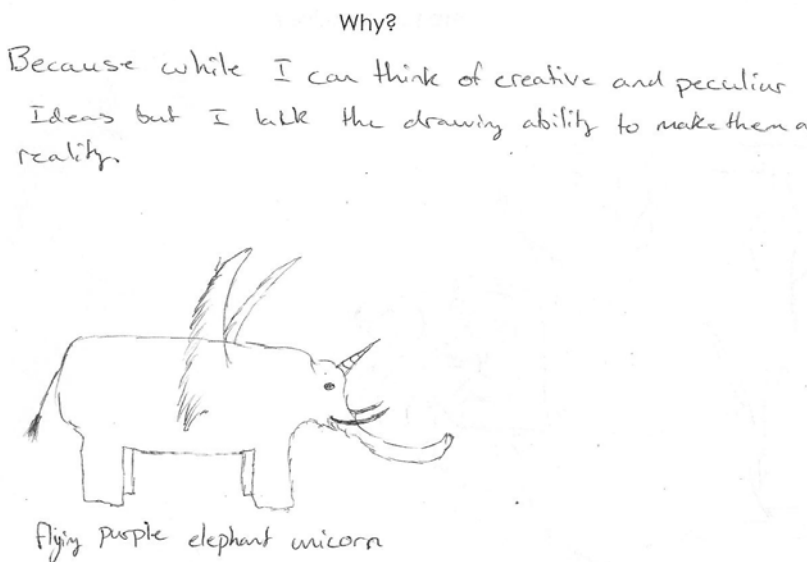 Why?
Because while I can think of creative and peculiar
Ideas but I lakk the drawing ability to make them a
reality.
flyiy purple elephant unicorn